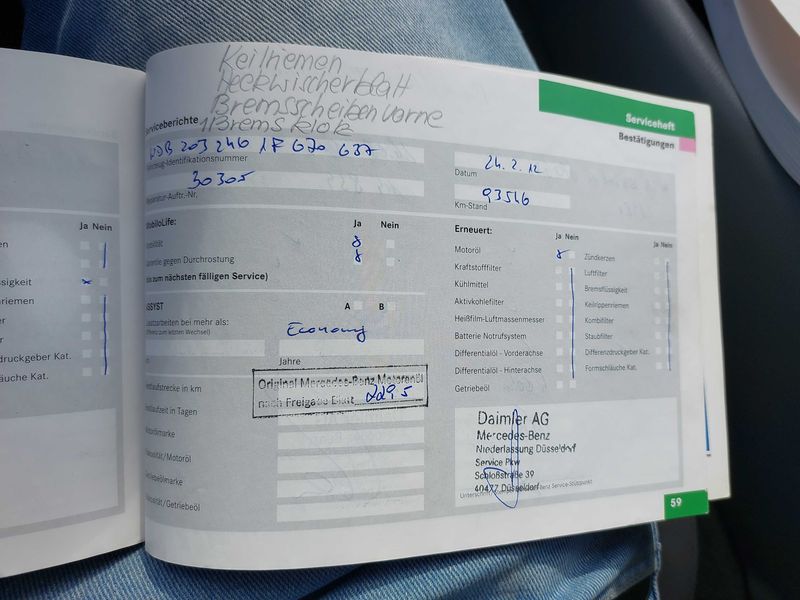 Keilriemen
Heckwischerblatt
Bremsscheiben vorne
1 Bremsklotz
Serviceheft
Bestätigungen
Serviceberichte
WDB 203 246 1F 670 637
Fahrzeug-Identifikationsnummer
30305
Reparatur-Auftr.-Nr.
24. 2. 12
Datum
93516
Km-Stand
MobiloLife:
Ja Nein
Mobilität
Garantie gegen Durchrostung
(bis zum nächsten fälligen Service)
ASSYST
A B
Zusatzarbeiten bei mehr als:
(Differenz zum letzten Wechsel)
Economy
km
Jahre
Restlaufstrecke in km
Restlaufzeit in Tagen
Motorölmarke
Viskosität/Motoröl
Getriebeölmarke
Viskosität/Getriebeöl
Original Mercedes-Benz Motorenöl
nach Freigabe Blatt 229.5
Erneuert:
Ja Nein
Motoröl
Kraftstofffilter
Kühlmittel
Aktivkohlefilter
Heißfilm-Luftmassenmesser
Batterie Notrufsystem
Differentialöl - Vorderachse
Differentialöl - Hinterachse
Getriebeöl
Ja Nein
Zündkerzen
Luftfilter
Bremsflüssigkeit
Keilrippenriemen
Kombifilter
Staubfilter
Differenzdruckgeber Kat.
Formschläuche Kat.
Daimler AG
Mercedes-Benz
Niederlassung Düsseldorf
Service Pkw
Schloßstraße 39
40477 Düsseldorf
59
Ja Nein
ssigkeit
nriemen
er
er
druckgeber Kat.
läuche Kat.